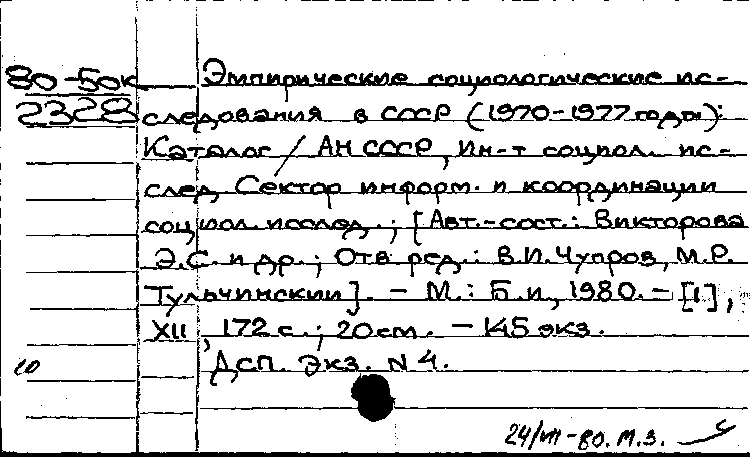 80-50к Эмпирические социологические ис-
2328 следования в СССР (1970-1977 годы):
Каталог / АН СССР, Ин-т социол. ис-
след. Сектор информ. и координации
социол. исслед.; [Авт.-сост.: Викторова
Э.С. и др.; Отв. ред.: В.И. Чупров, М.Р.
Тульчинский]. - М.: Б.и., 1980. - [1],
XII, 172 с.; 20 см. - 145 экз.
10 Дсп. Экз. N 4.
24/VII-80. М.З.